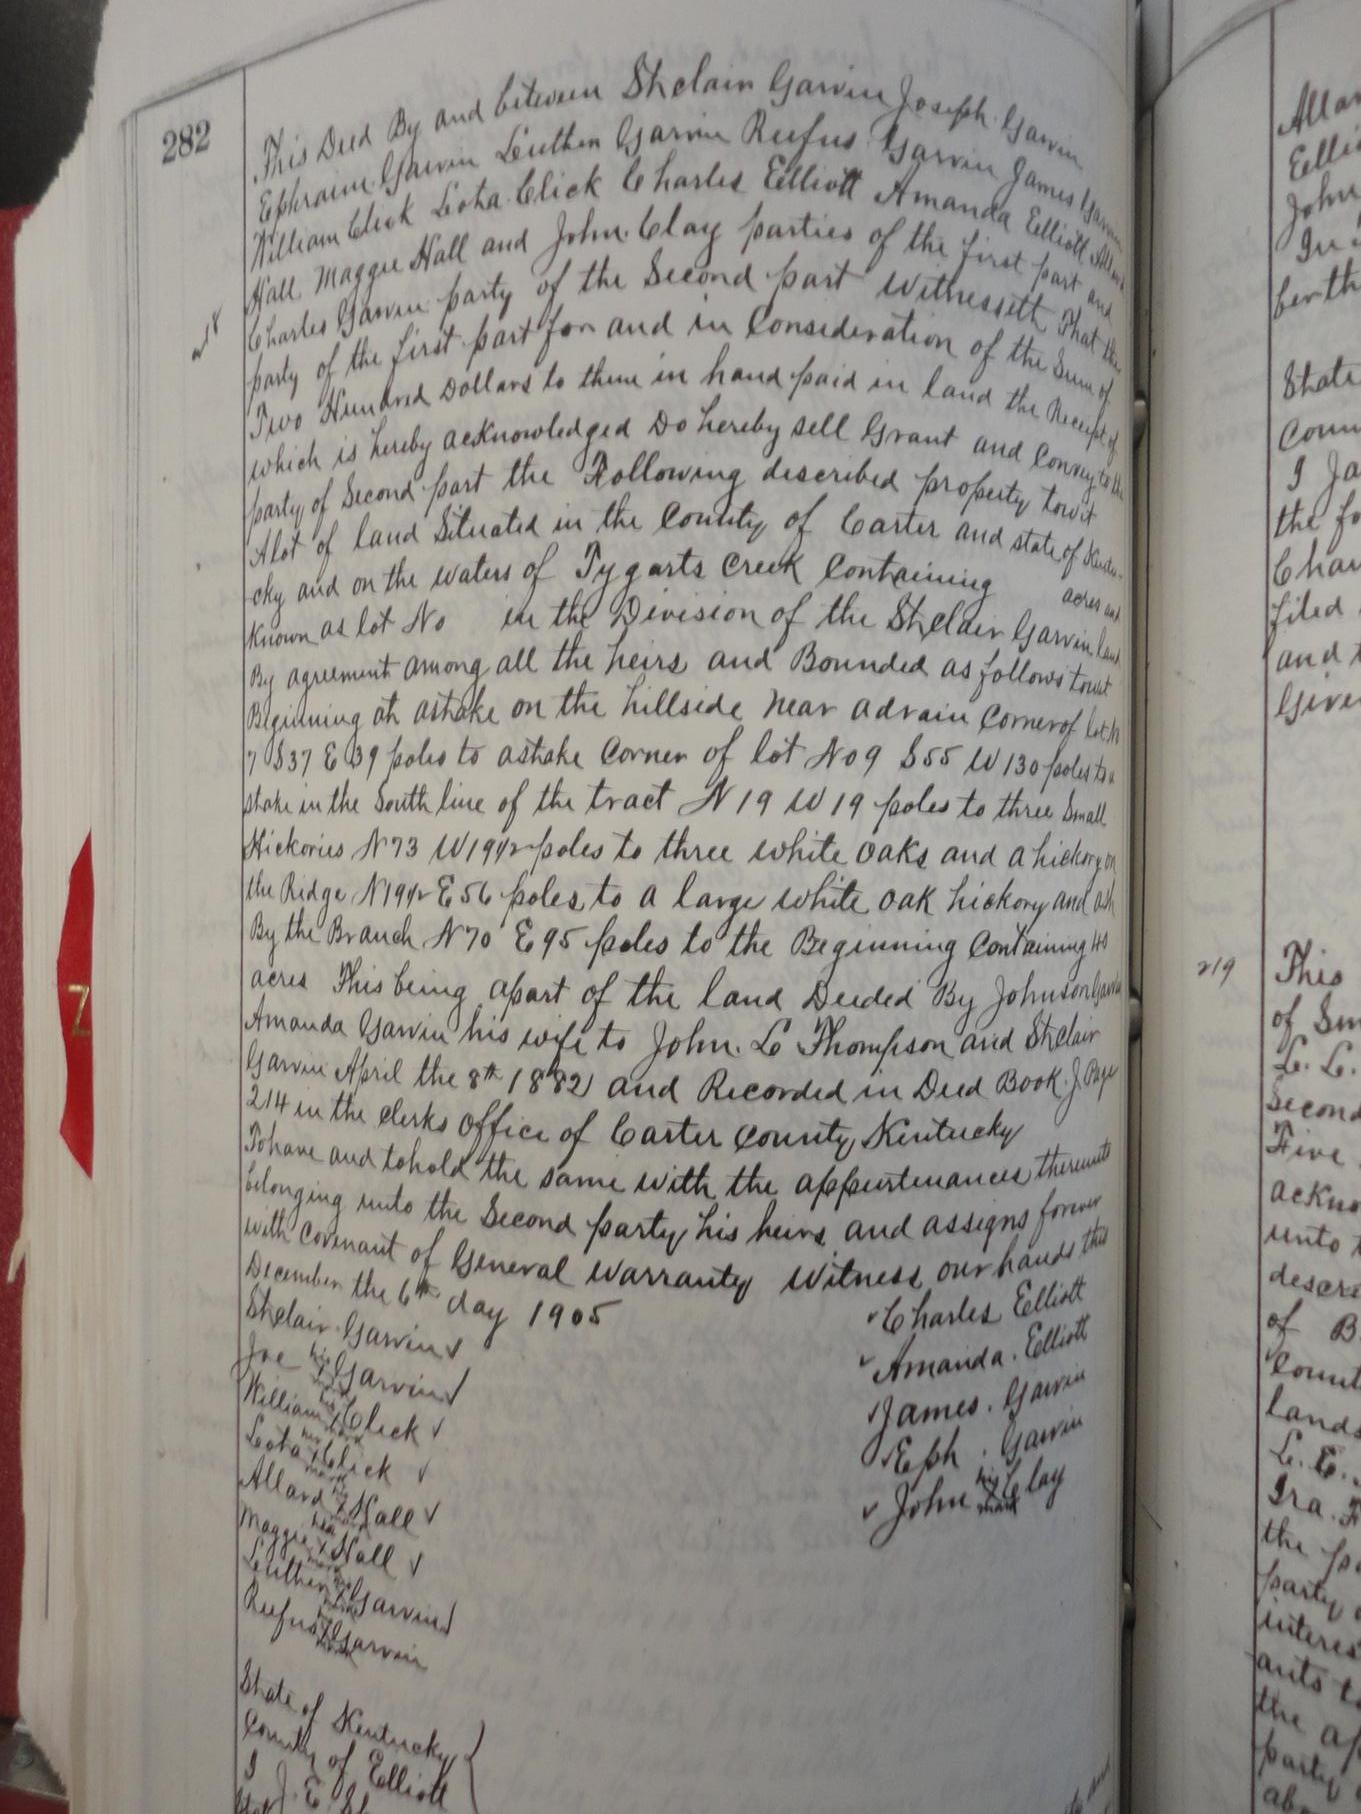 282
This Deed By and between Stclair Garvin Joseph Garvin
Ephraim Garvin Leuthen Garvin Rufus Garvin James Garvin
William Click Leota Click Charles Elliott Amanda Elliott Allard
Hall Maggie Hall and John Clay parties of the first part and
Charles Garvin party of the Second part Witnesseth That the
party of the first part for and in Consideration of the Sum of
Two Hundred Dollars to them in hand paid in land the Receipt of
which is hereby acknowledged Do hereby sell Grant and Convey to the
party of Second part the Following described property towit
A lot of land Situated in the County of Carter and state of Kentu-
cky and on the waters of Tygarts Creek Containing acres and
Known as lot No in the Division of the Stclair Garvin land
By agreement among all the heirs and Bounded as follows towit
Beginning at a stake on the hillside near a drain Corner of lot No
7 S37 E 39 poles to a stake Corner of lot No 9 S55 W 130 poles to a
stake in the South line of the tract N 19 W 19 poles to three Small
Hickories N73 W 19½ poles to three white oaks and a hickory on
the Ridge N19½ E 56 poles to a large white oak hickory and ash
By the Branch N70 E 95 poles to the Beginning Containing 40
acres This being a part of the land Deeded By Johnson Garvin
Amanda Garvin his wife to John. L Thompson and Stclair
Garvin April the 8th 1882 and Recorded in Deed Book J. Page
214 in the clerks Office of Carter County Kentucky
To have and to hold the same with the appurtenances thereunto
belonging unto the Second party his heirs and assigns forever
with Covenant of General Warranty Witness our hands this
December the 6th day 1905
Stclair Garvin
Joe his x mark Garvin
William his x mark Click
Leota her x mark Click
Allard his x mark Hall
Maggie her x mark Hall
Leuthen his x mark Garvin
Rufus his x mark Garvin
Charles Elliott
Amanda. Elliott
James. Garvin
Eph. Garvin
John his x mark Clay
State of Kentucky
County of Elliott
I J. E.
219
This
of
L. L.
Second
Five
unto
of B
County
lands
L. E.
Ira. F
the
party
the
party
State
I Ja
the
filed
and
John